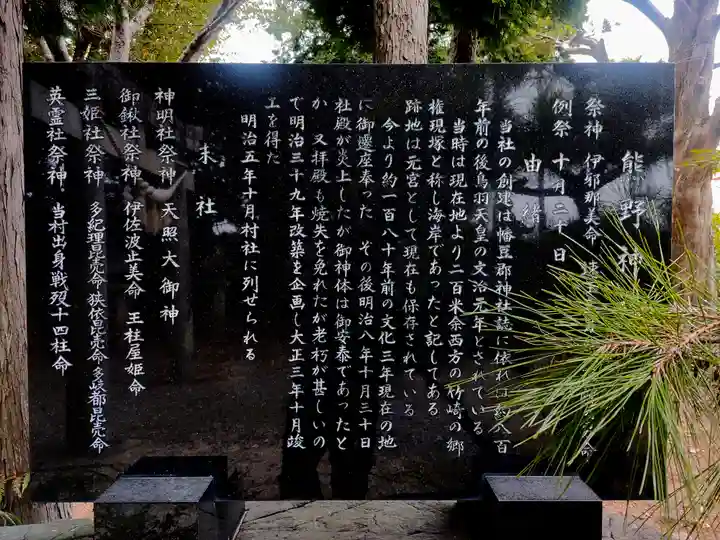 熊野神
祭神 伊耶那美命 速 命
例祭 十月二十日
由緒
当社の創建は幡豆郡神社誌に依れば約八百
年前の後鳥羽天皇の文治元年とされている
当時は現在地より二百米余西方の竹崎の郷
権現塚と称し海岸であったと記してある
跡地は元宮として現在も保存されている
今より約一百八十年前の文化三年現在の地
に御遷座奉った その後明治八年十月三十日
社殿が炎上したが御神体は御安泰であったと
か 又拝殿も焼失を免れたが老朽が甚しいの
で明治三十九年改築を企画し大正三年十月竣
工を得た
明治五年十月村社に列せられる
末社
神明社祭神 天照大御神
御鍬社祭神 伊佐波止美命 玉柱屋姫命
三姫社祭神 多紀理毘売命 狭依毘売命 多岐都毘売命
英霊社祭神 当村出身戦歿十四柱命